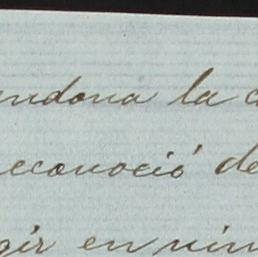 ndona la c
econoció de
gir en nin